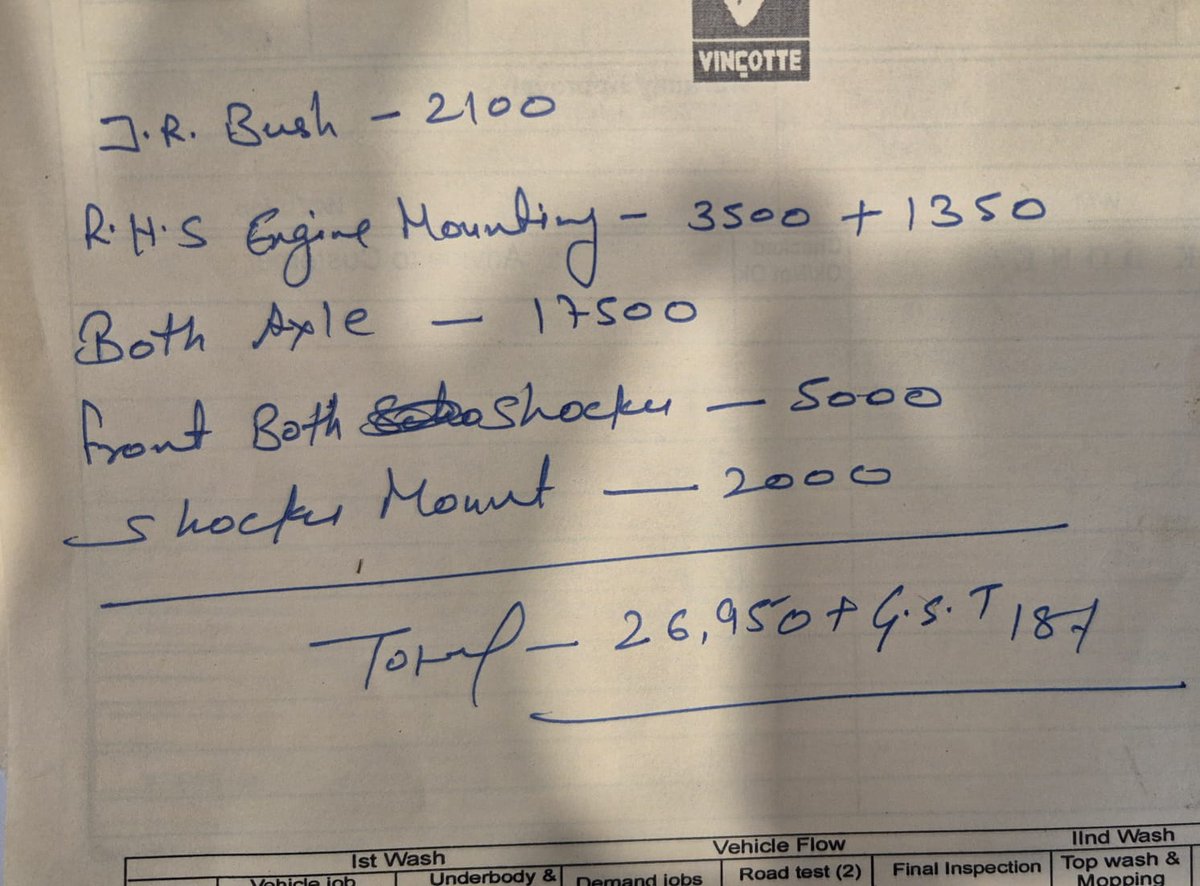 VINÇOTTE
J.R. Bush - 2100
R.H.S Engine Mounting - 3500 + 1350
Both Axle - 17500
front Both Shocker - 5000
Shocker Mount - 2000
Total - 26,950 + G.S.T 18%
Vehicle Flow
Ist Wash
IInd Wash
Vehicle job
Underbody &
Demand jobs
Road test (2)
Final Inspection
Top wash &
Mopping